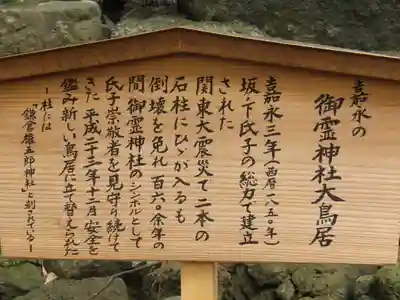 嘉永の
御霊神社大鳥居
嘉永三年(西暦一八五〇年)
坂ノ下氏子の総力で建立
された
関東大震災で二本の
石柱にひびが入るも
倒壊を免れ百六〇余年の
間御霊神社のシンボルとして
氏子崇敬者を見守り続けて
きた 平成二十三年十二月 安全を
鑑み新しい鳥居に立て替えられた
ー柱には
「鎌倉権五郎神社」と刻されているー